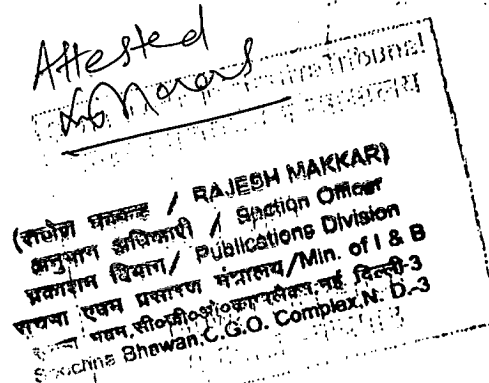 Attested
Tribunal
(राजेश मक्कड़ / RAJESH MAKKAR)
अनुभाग अधिकारी / Section Officer
प्रकाशन विभाग/ Publications Division
सूचना एवम प्रसारण मंत्रालय/Min. of I & B
सूचना भवन,सी०जी०ओ०काम्पलैक्स,नई दिल्ली-3
Soochna Bhawan C.G.O. Complex,N. D.-3